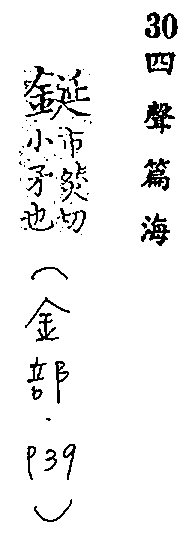 30四聲篇海
鋋
市然切
小矛也
(金部．P39)